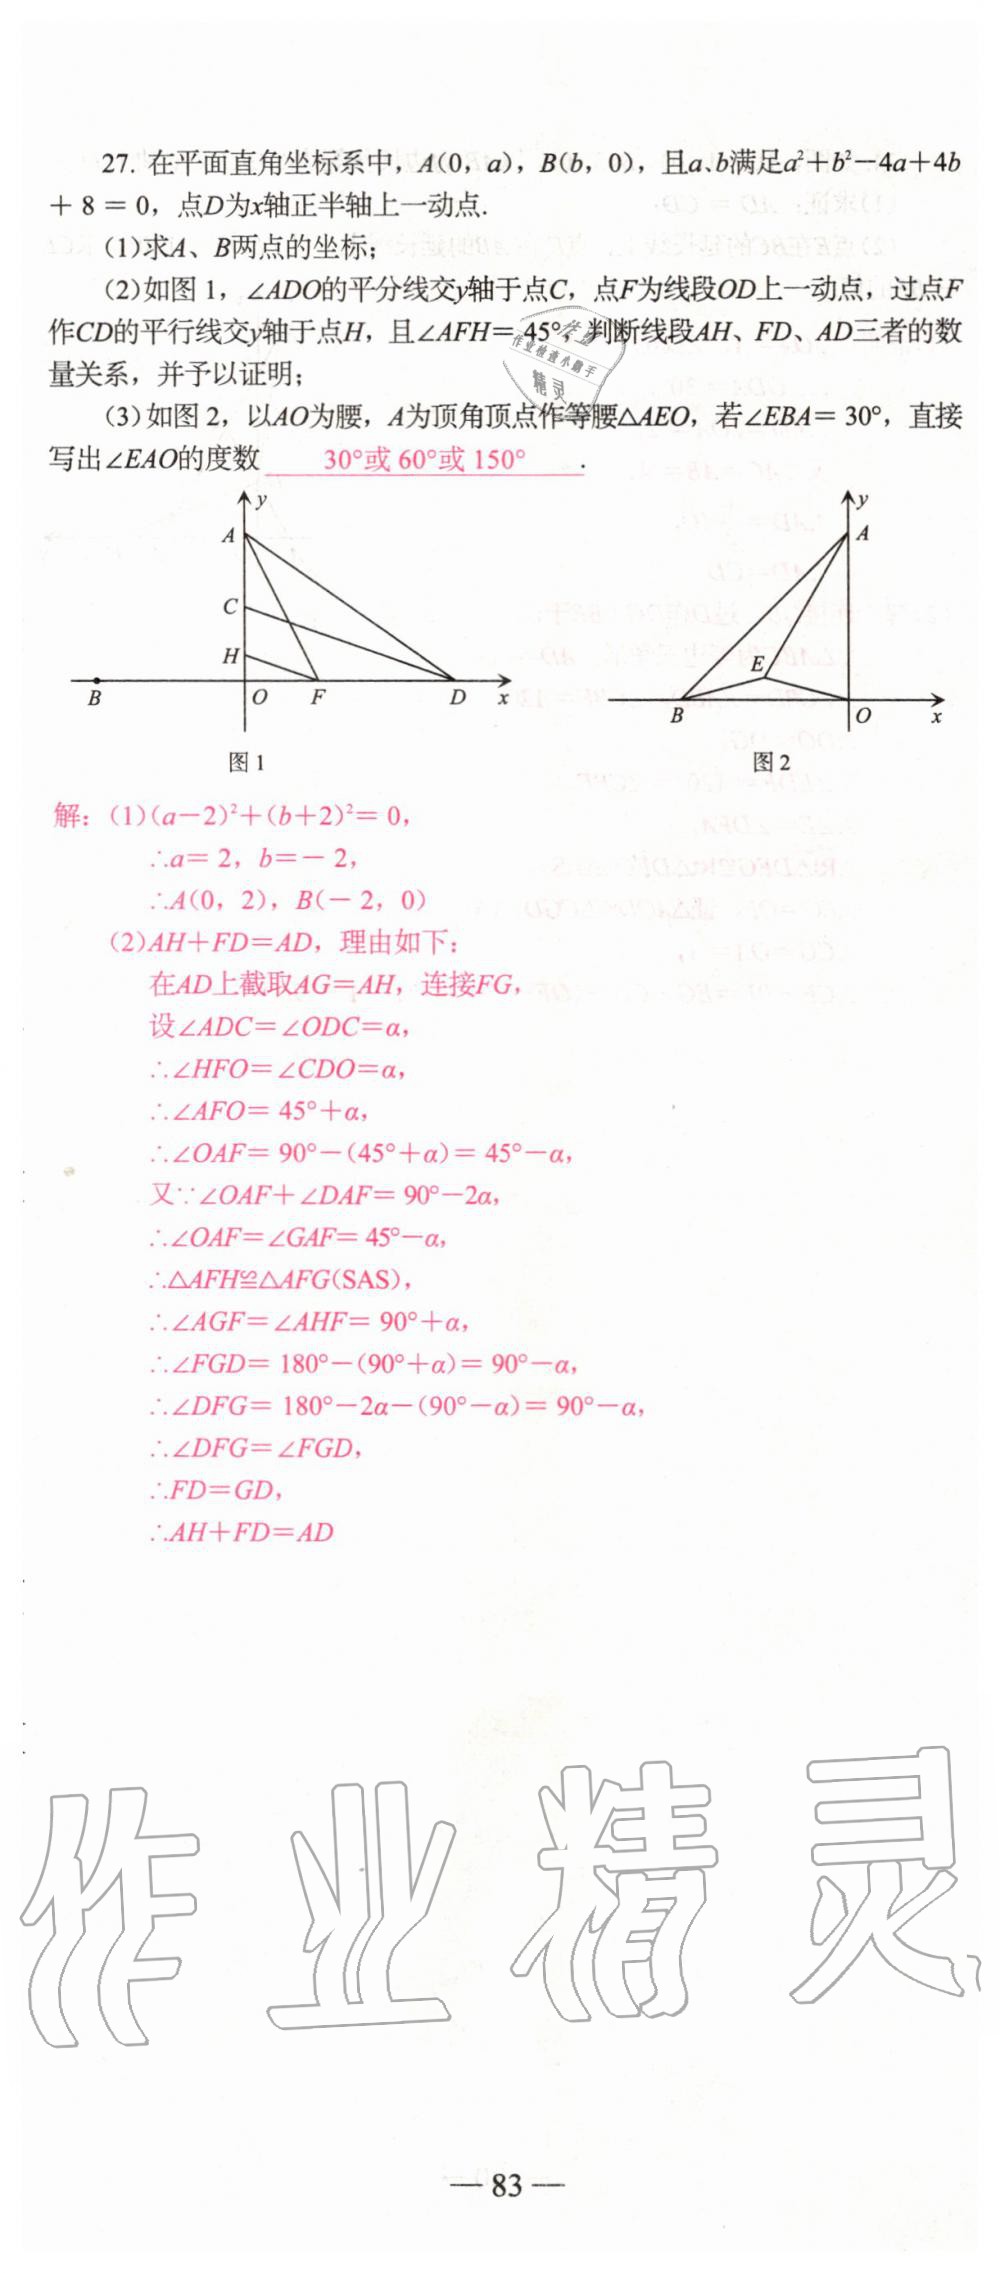 27. 在平面直角坐标系中，A(0，a)，B(b，0)，且a、b满足a²+b²−4a+4b
+ 8 = 0，点D为x轴正半轴上一动点.
(1)求A、B两点的坐标；
(2)如图 1，∠ADO的平分线交y轴于点C，点F为线段OD上一动点，过点F
作CD的平行线交y轴于点H，且∠AFH= 45°，判断线段AH、FD、AD三者的数
量关系，并予以证明；
(3)如图 2，以AO为腰，A为顶角顶点作等腰△AEO，若∠EBA= 30°，直接
写出∠EAO的度数 30°或 60°或 150° .
y
A
C
H
B
O
F
D
x
图 1
y
A
E
B
O
x
图 2
作业检查小助手
精灵
解：(1)(a−2)²+(b+2)²= 0，
∴a= 2，b=− 2，
∴A(0，2)，B(− 2，0)
(2)AH+FD=AD，理由如下：
在AD上截取AG=AH，连接FG，
设∠ADC=∠ODC=α，
∴∠HFO=∠CDO=α，
∴∠AFO= 45°+α，
∴∠OAF= 90°−(45°+α)= 45°−α，
又∵∠OAF+∠DAF= 90°−2α，
∴∠OAF=∠GAF= 45°−α，
∴△AFH≌△AFG(SAS)，
∴∠AGF=∠AHF= 90°+α，
∴∠FGD= 180°−(90°+α)= 90°−α，
∴∠DFG= 180°−2α−(90°−α)= 90°−α，
∴∠DFG=∠FGD，
∴FD=GD，
∴AH+FD=AD
作业精灵
— 83 —